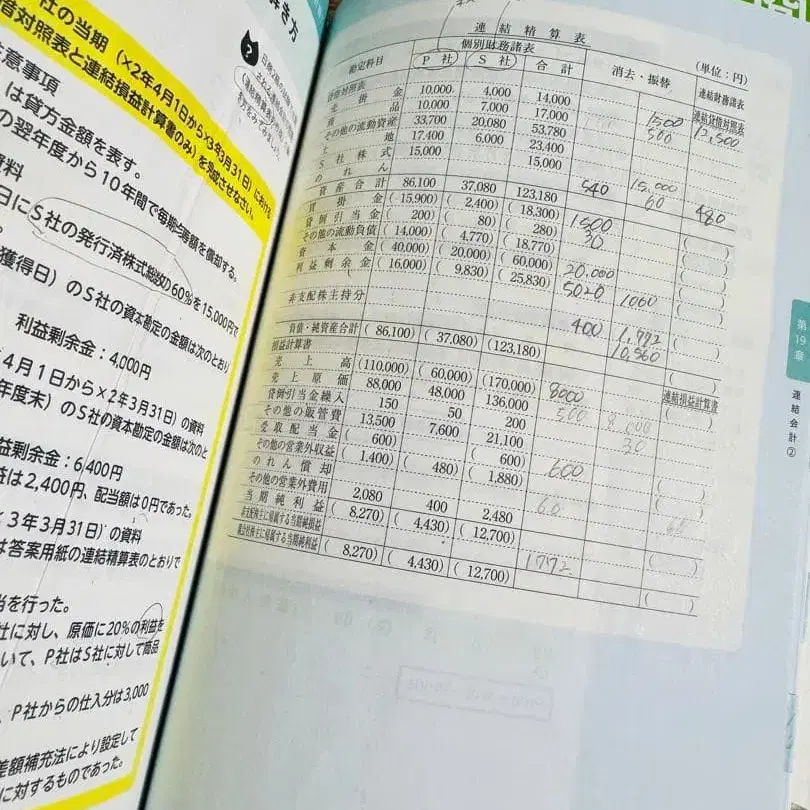 解き方
社の当期（×2年4月1日から×3年3月31日）における
借対照表と連結損益計算書のみ）を完成させなさい。
注意事項
は貸方金額を表す。
の翌年度から10年間で毎期均等額を償却する。
資料
日にS社の発行済株式総数の60％を15,000円で
獲得日）のS社の資本勘定の金額は次のとおり
利益剰余金：4,000円
4月1日から×2年3月31日）の資料
年度末）のS社の資本勘定の金額は次のと
益剰余金：6,400円
益は2,400円、配当額は0円であった。
×3年3月31日）の資料
は答案用紙の連結精算表のとおりで
当を行った。
社に対し、原価に20％の利益を
いて、P社はS社に対して商品
、P社からの仕入分は3,000
差額補充法により設定して
に対するものであった。
連結精算表
（単位：円）
勘定科目 個別財務諸表 消去・振替 連結財務諸表
P社 S社 合計
貸借対照表 連結貸借対照表
売掛金 10,000 4,000 14,000 1500 12,500
商品 10,000 7,000 17,000 500
その他の流動資産 33,700 20,080 53,780
土地 17,400 6,000 23,400
S社株式 15,000 15,000 15,000
のれん 540 60 480
資産合計 86,100 37,080 123,180
買掛金 (15,900) (2,400) (18,300) 1500 ( )
貸倒引当金 (200) (80) (280) 30 ( )
その他の流動負債 (14,000) (4,770) (18,770) ( )
資本金 (40,000) (20,000) (60,000) 20,000 ( )
利益剰余金 (16,000) (9,830) (25,830) 5020 1060 ( )
非支配株主持分 400 1,772 ( )
10,360
負債・純資産合計 (86,100) (37,080) (123,180) ( )
損益計算書 連結損益計算書
売上高 (110,000) (60,000) (170,000) 8000 ( )
売上原価 88,000 48,000 136,000 500
貸倒引当金繰入 150 50 200 30
その他の販管費 13,500 7,600 21,100
受取配当金 (600) (600) 600
その他の営業外収益 (1,400) (480) (1,880) ( )
のれん償却 60 60
その他の営業外費用 2,080 400 2,480
当期純利益 (8,270) (4,430) (12,700) ( )
非支配株主に帰属する当期純利益 1772
親会社株主に帰属する当期純利益 (8,270) (4,430) (12,700) ( )
第19章
連結会計②